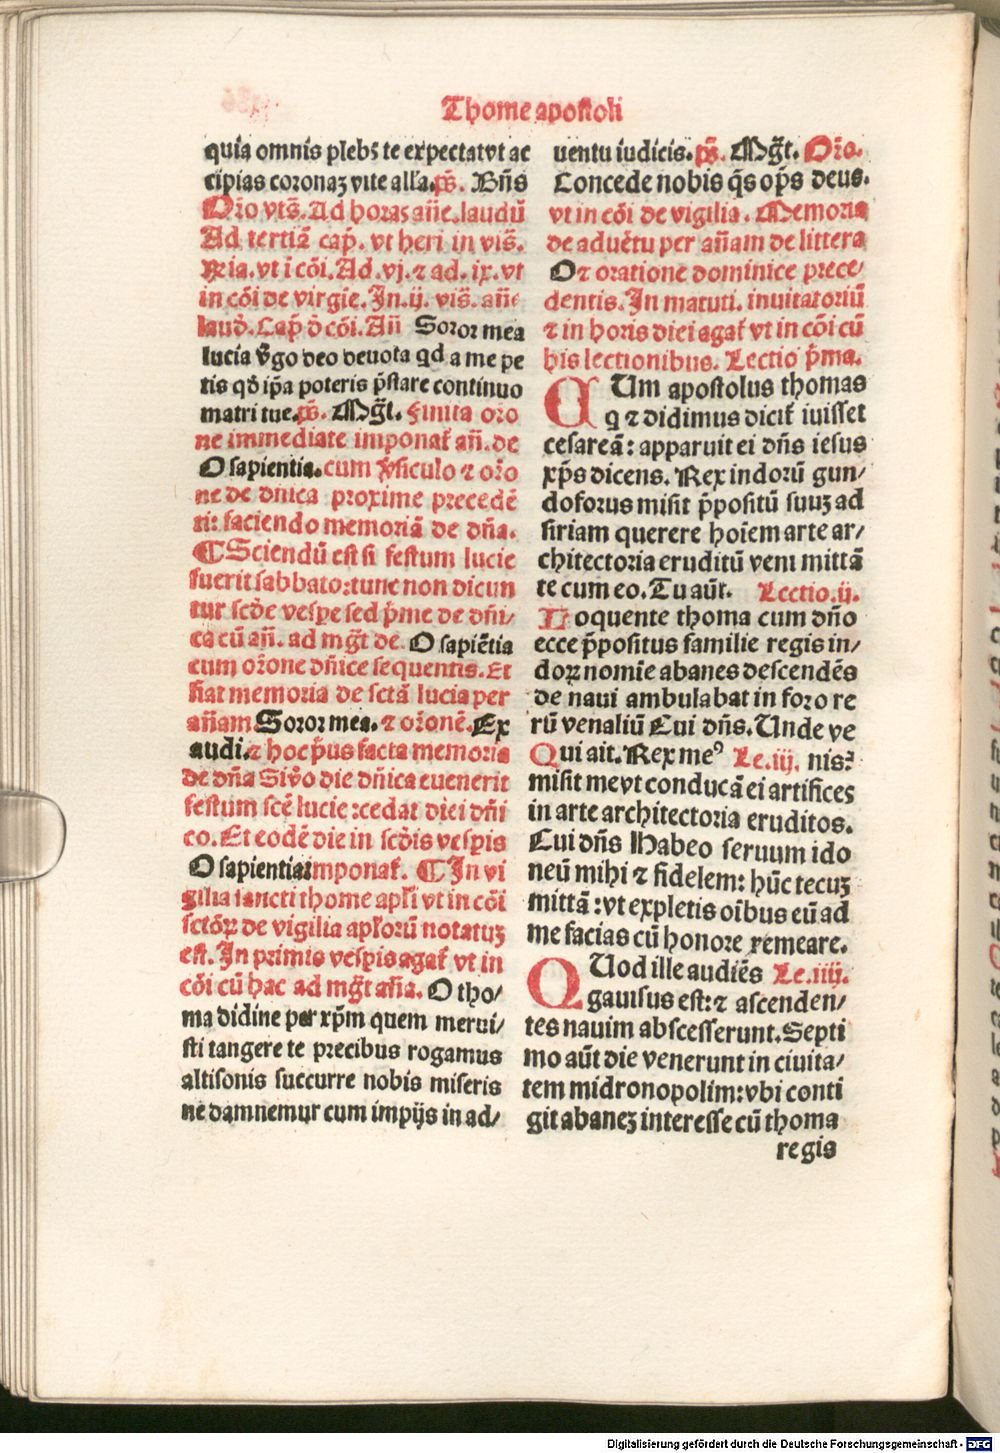 Thome apostoli
quia omnis plebs te expectat vt ac
cipias coronaʒ vite alľa. p̄s. Bn̄s
Or̄o vts̄. Ad horas an̄e. laudū
Ad tertiā cap̄. vt heri in vis̄.
R̄ia. vt ī cōi. Ad .vj. ⁊ ad .ix. vt
in cōi de virgīe. In .ij. vis̄. an̄e
laud̄. Cap̄ d̄ cōi. An̄ Soror mea
lucia v̄go deo deuota qd a me pe
tis qd̄ ip̄a poteris p̄stare continuo
matri tue. p̄s. Mḡt. Finita or̄o
ne immediate imponat̄ an̄. de
O sapientia. cum v̄siculo ⁊ or̄o
ne de dn̄ica proxime precedē
ti: faciendo memoriā de dn̄a.
¶ Sciendū est si festum lucie
fuerit sabbato: tunc non dicun
tur scd̄e vesp̄e sed p̄me de dn̄i/
ca cū an̄. ad mḡt de. O sapiētia
cum or̄one dn̄ice sequentis. Et
fiat memoria de sctā lucia per
an̄am Soror mea. ⁊ or̄onē. Ex
audi. ⁊ hoc p̄us facta memoria
de dn̄a Si v̄o die dn̄ica euenerit
festum scē lucie: cedat diei dn̄i
co. Et eodē die in scd̄is vesp̄is
O sapientia imponat̄. ¶ In vi
gilia sancti thome apľi vt in cōi
sctōꝝ de vigilia apľorū notatuʒ
est. In primis vesp̄is agat̄ vt in
cōi cū hac ad mḡt an̄a. O tho/
ma didime per xp̄m quem merui/
sti tangere te precibus rogamus
altisonis succurre nobis miseris
ne damnemur cum impijs in ad/
uentu iudicis. p̄s. Mḡt. Or̄o.
Concede nobis qs̄ op̄s deus.
vt in cōi de vigilia. Memoria
de aduētu per an̄am de littera
O ⁊ oratione dominice prece/
dentis. In matuti. inuitatoriū
⁊ in horis diei agat̄ vt in cōi cū
his lectionibus. Lectio p̄ma.
CUm apostolus thomas
q ⁊ didimus dicit̄ iuisset
cesareā: apparuit ei dn̄s iesus
xp̄s dicens. Rex indorū gun/
doforus misit p̄positū suuʒ ad
siriam querere hoīem arte ar/
chitectoria eruditū veni mittā
te cum eo. Tu aūt. Lectio .ij.
Loquente thoma cum dn̄o
ecce p̄positus familie regis in/
doꝝ nomīe abanes descendēs
de naui ambulabat in foro re
rū venaliū Cui dn̄s. Unde ve
Qui ait. Rex meꝰ Le. iij. nis?
misit me vt conducā ei artifices
in arte architectoria eruditos.
Cui dn̄s Habeo seruum ido
neū mihi ⁊ fidelem: hūc tecuʒ
mittā: vt expletis oībus eū ad
me facias cū honore remeare.
QUod ille audiēs Le. iiij.
gauisus est: ⁊ ascenden/
tes nauim abscesserunt. Septi
mo aūt die venerunt in ciuita/
tem midronopolim: vbi conti
git abaneʒ interesse cū thoma
regis
Digitalisierung gefördert durch die Deutsche Forschungsgemeinschaft - DFG